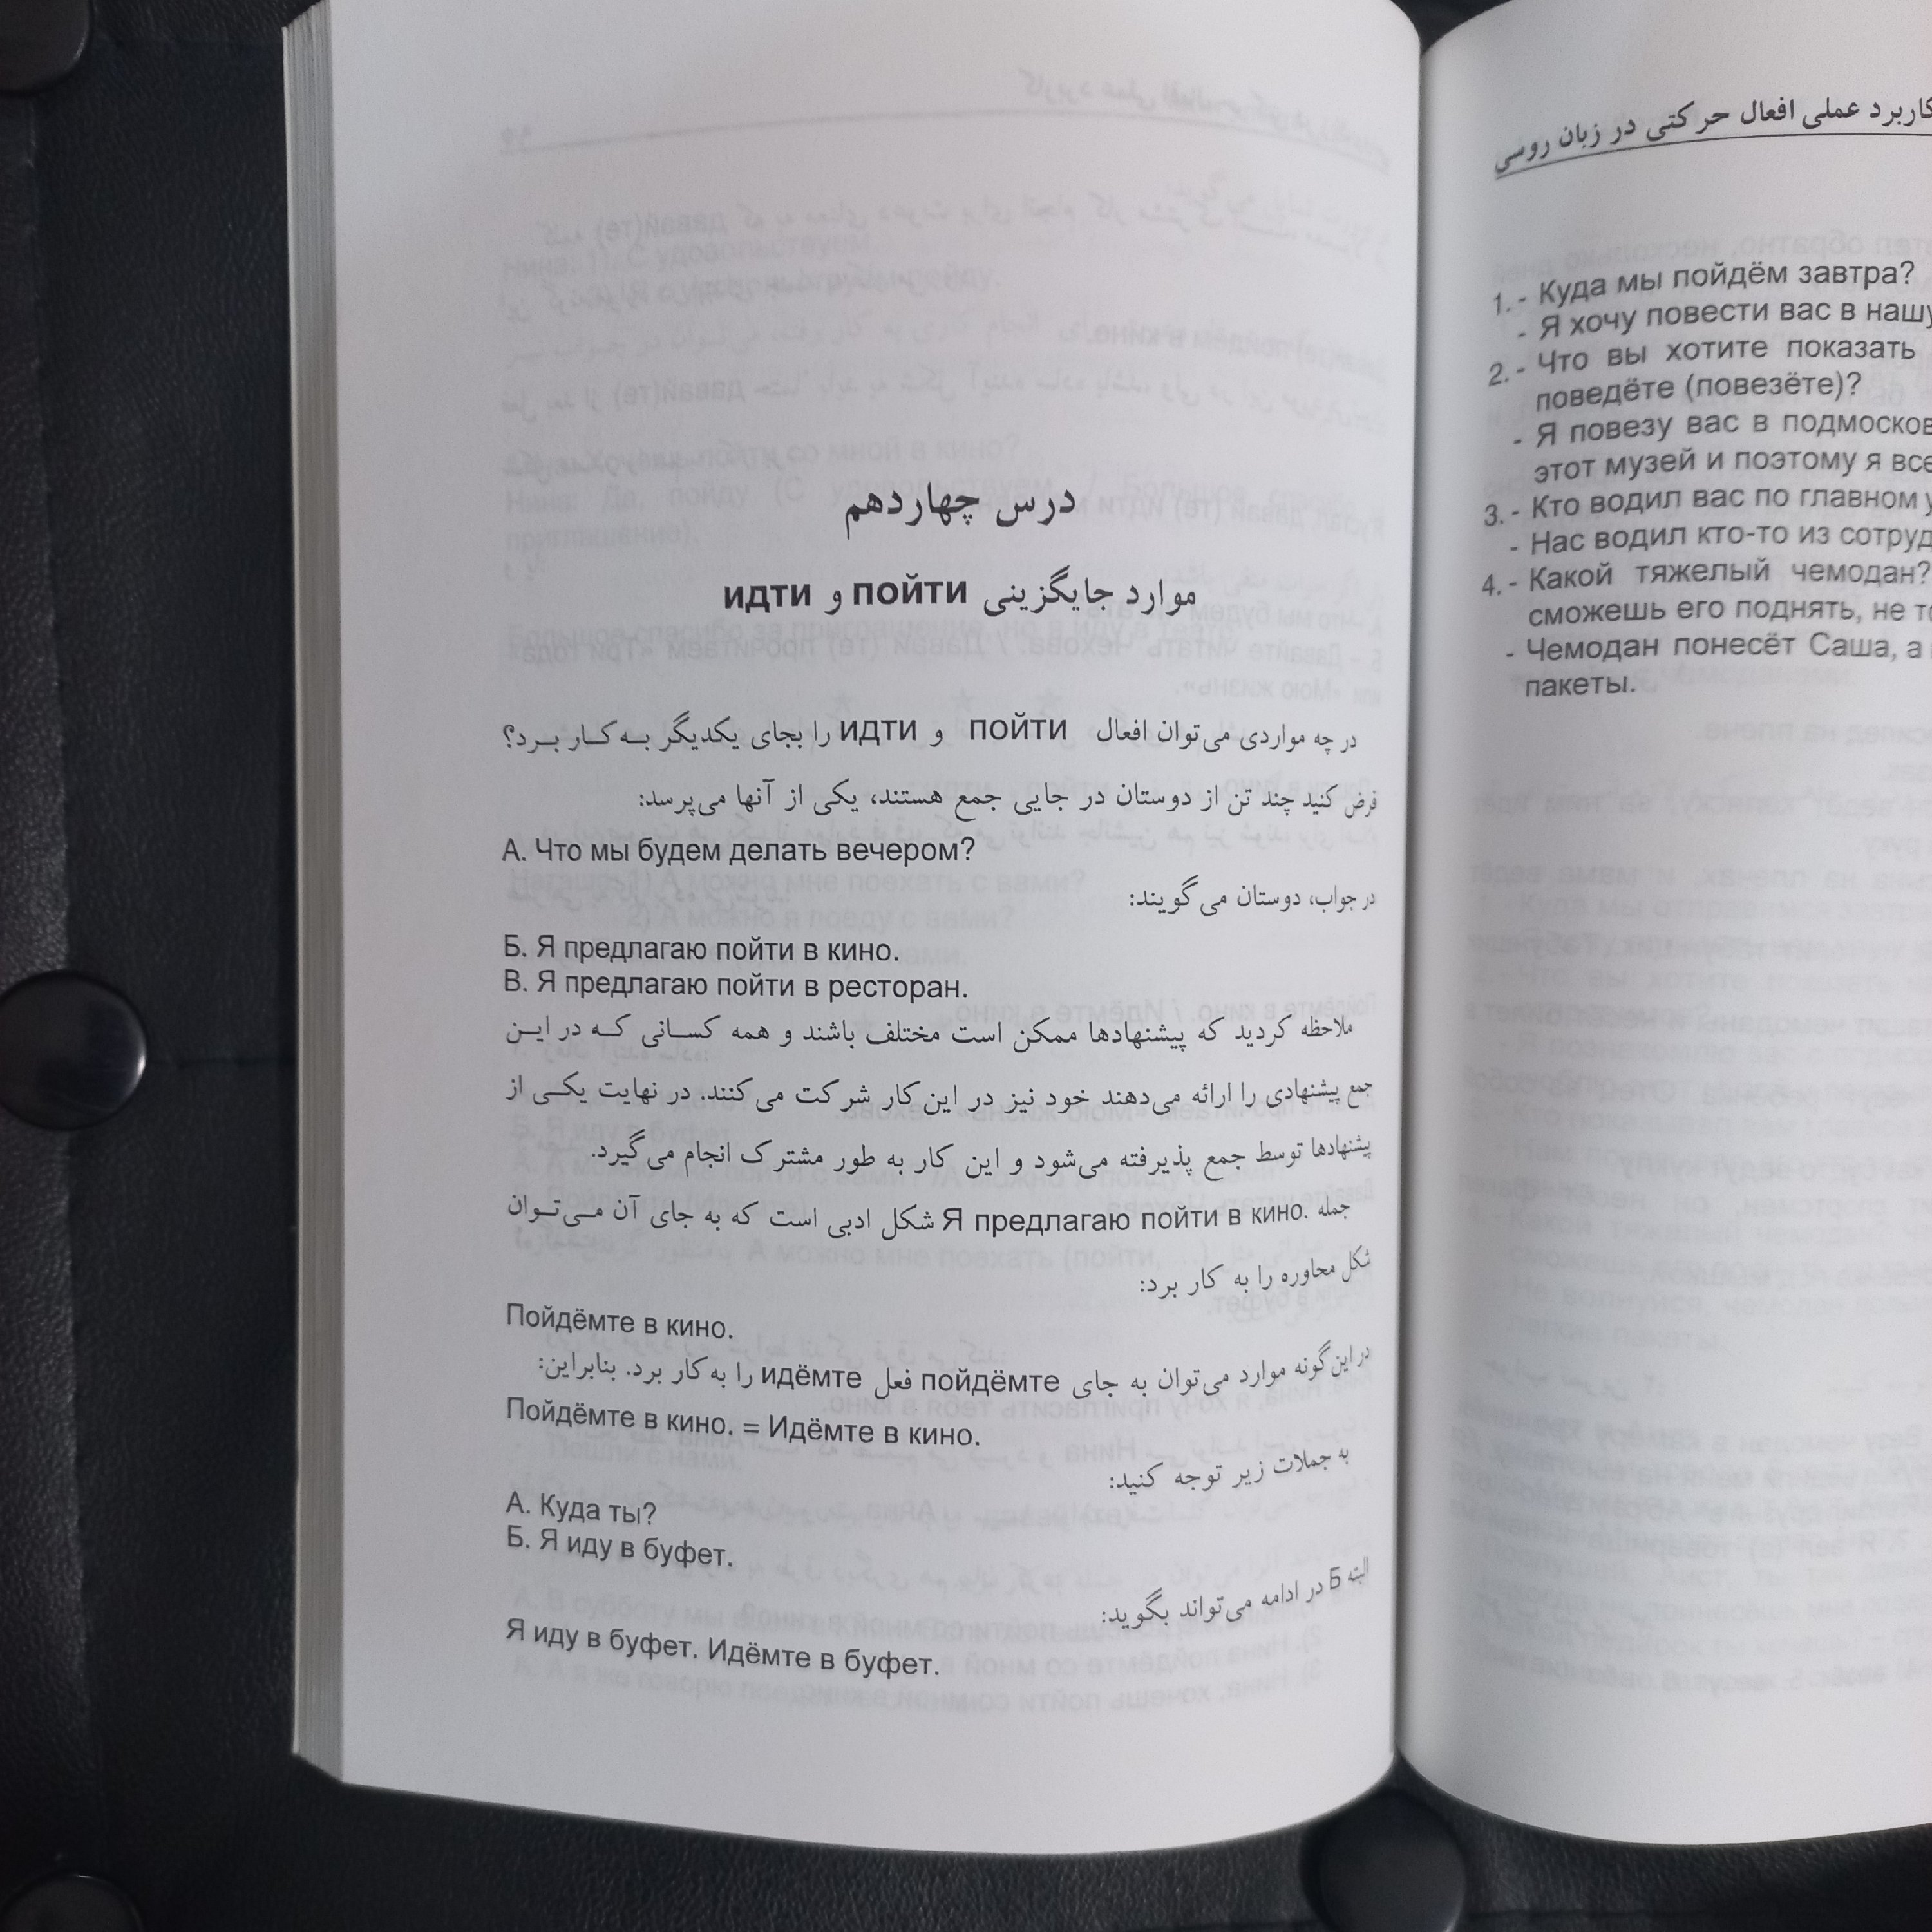 درس چهاردهم
موارد جایگزینی пойти و идти
در چه مواردی می‌توان افعال пойти و идти را بجای یکدیگر به کار برد؟
فرض کنید چند تن از دوستان در جایی جمع هستند، یکی از آنها می‌پرسد:
А. Что мы будем делать вечером?
در جواب، دوستان می‌گویند:
Б. Я предлагаю пойти в кино.
В. Я предлагаю пойти в ресторан.
ملاحظه کردید که پیشنهادها ممکن است مختلف باشند و همه کسانی که در این
جمع پیشنهادی را ارائه می‌دهند خود نیز در این کار شرکت می‌کنند. در نهایت یکی از
پیشنهادها توسط جمع پذیرفته می‌شود و این کار به طور مشترک انجام می‌گیرد.
جمله Я предлагаю пойти в кино. شکل ادبی است که به جای آن می‌توان
شکل محاوره را به کار برد:
Пойдёмте в кино.
در این گونه موارد می‌توان به جای пойдёмте فعل идёмте را به کار برد. بنابراین:
Пойдёмте в кино. = Идёмте в кино.
به جملات زیر توجه کنید:
А. Куда ты?
Б. Я иду в буфет.
البته Б در ادامه می‌تواند بگوید:
Я иду в буфет. Идёмте в буфет.
کاربرد عملی افعال حرکتی در زبان روسی
1. - Куда мы пойдём завтра?
- Я хочу повести вас в нашу
2. - Что вы хотите показать
поведёте (повезёте)?
- Я повезу вас в
этот музей и поэтому я
3. - Кто водил вас по главном
- Нас водил кто-то из
4. - Какой тяжелый чемодан?
сможешь его поднять, не
- Чемодан понесёт Саша, а
пакеты.